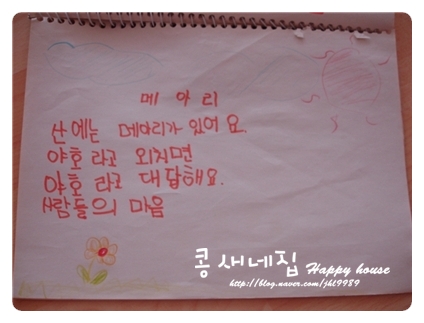 메 아 리
산에는 메아리가 있어요.
야호 라고 외치면
야호 라고 대답해요.
사람들의 마음
콩새네집 Happy house
http://blog.naver.com/jht9989